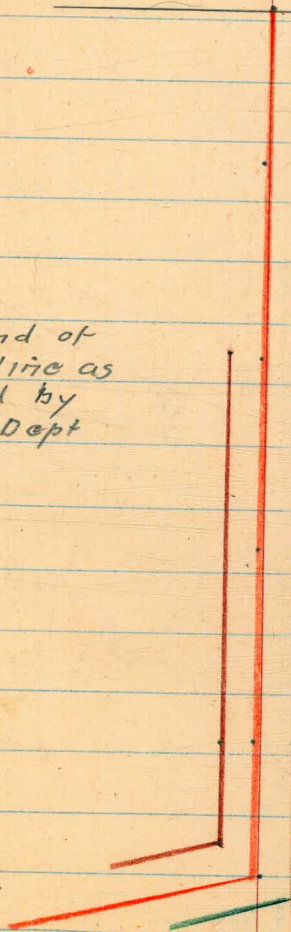 nd of
line as
d by
Dept